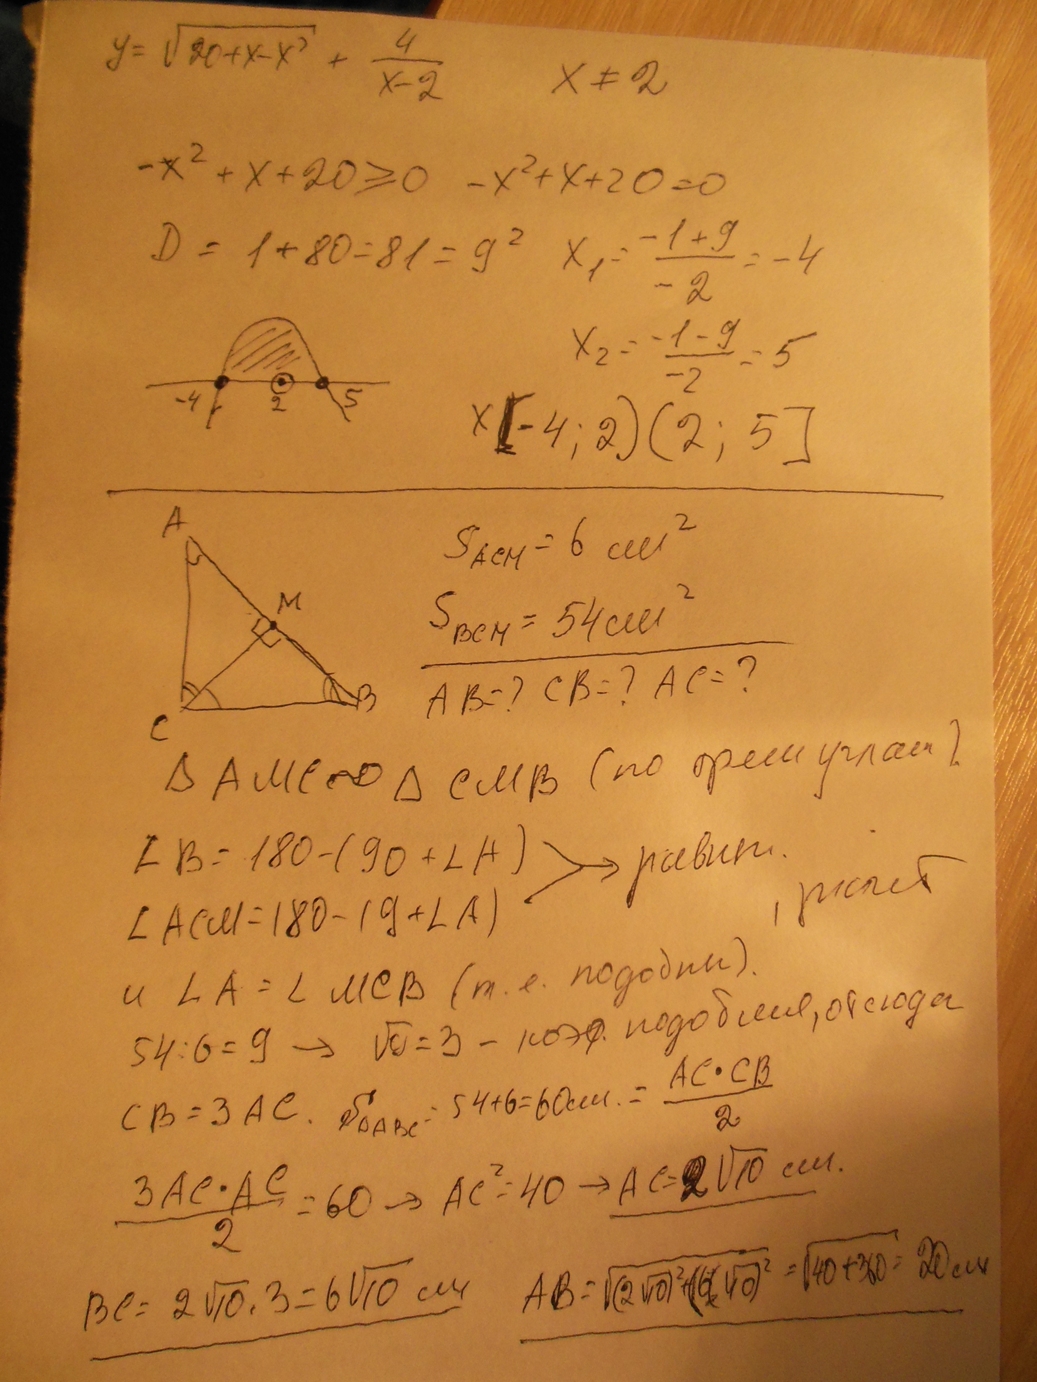 y = √(20+x-x²) + 4/(x-2)    x ≠ 2
-x² + x + 20 ≥ 0    -x² + x + 20 = 0
D = 1 + 80 = 81 = 9²    x₁ = (-1+9)/(-2) = -4
x₂ = (-1-9)/(-2) = 5
-4    2    5
x[-4; 2)(2; 5]
A
M
C
B
S_ACM = 6 см²
S_BCM = 54 см²
AB=? CB=? AC=?
Δ AMC ∼ Δ CMB (по трем углам).
∠B = 180-(90+∠A)
→ равны.
∠ACM = 180-(9+∠A)
и ∠A = ∠MCB (т.е. подобны).
54:6=9 → √9=3 – коэф. подобия, отсюда
CB = 3AC. S_ΔABC = 54+6=60см. = (AC·CB)/2
(3AC·AC)/2 = 60 → AC² = 40 → AC = 2√10 см.
BC = 2√10·3 = 6√10 см
AB = √((2√10)²+(6√10)²) = √(40+360) = 20 см